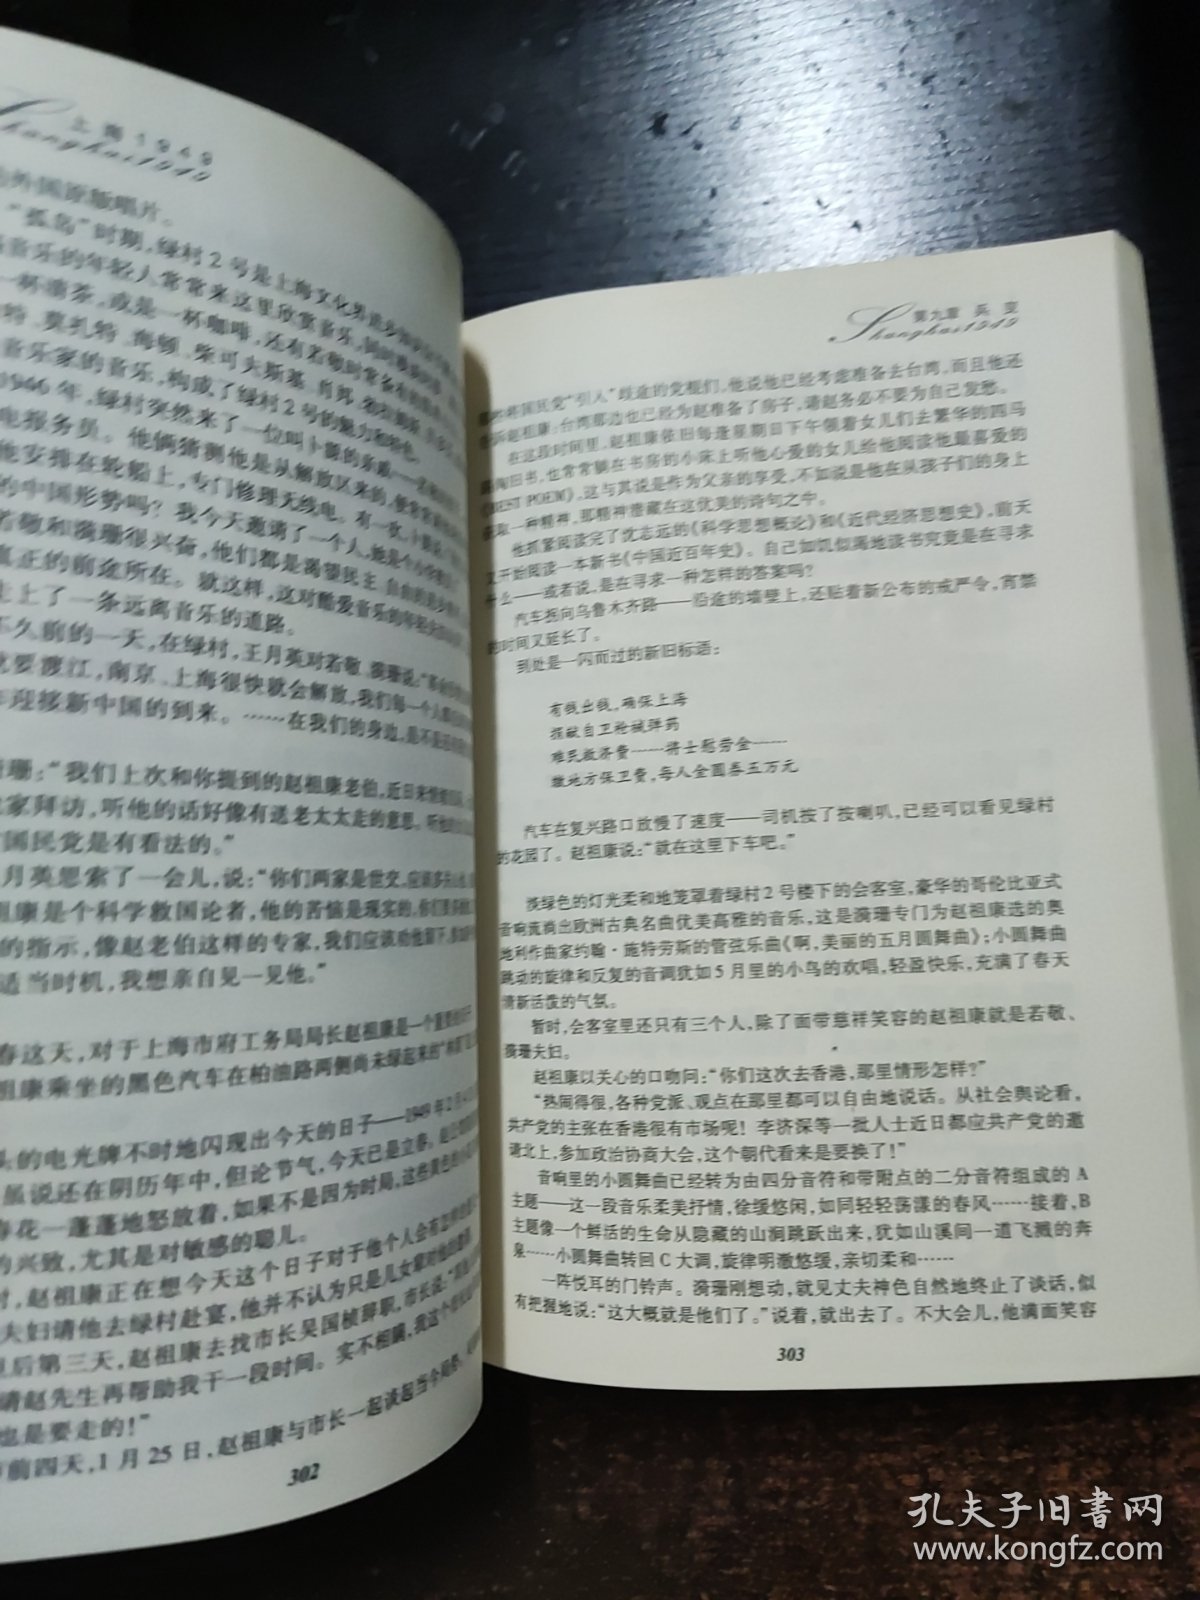 上海1949
Shanghai1949
外国原版唱片。
“孤岛”时期，绿村2号是上海文化界进步
音乐的年轻人常常来这里欣赏音乐，
一杯清茶，或是一杯咖啡，还有若敏时常备
特、莫扎特、海顿、柴可夫斯基、肖邦
音乐家的音乐，构成了绿村2号的魅力和特色。
1946年，绿村突然来了一位叫卜
电报务员。他俩猜测他是从解放区来的，
他安排在轮船上，专门修理无线电。有一次，
的中国形势吗？我今天邀请了一个人，她是个
若敏和漪珊很兴奋，他们都是渴望民主、自由的
真正的前途所在。就这样，这对酷爱音乐的年轻
上了一条远离音乐的道路。
不久前的一天，在绿村，王月英对若敏、漪珊说：
就要渡江，南京、上海很快就会解放，我们每一个人都
迎接新中国的到来。……在我们的身边，是不是
珊：“我们上次和你提到的赵祖康老伯，近日来
家拜访，听他的话好像有送老太太走的意思。
国民党是有看法的。”
月英思索了一会儿，说：“你们两家是世交，应该多
祖康是个科学救国论者，他的苦恼是现实的，你们
的指示，像赵老伯这样的专家，我们应该动他留下，
适当时机，我想亲自见一见他。”
春这天，对于上海市府工务局局长赵祖康是一个重要的
祖康乘坐的黑色汽车在柏油路两侧尚未绿起来的
头的电光牌不时地闪现出今天的日子——1949年2月4日
虽说还在阴历年中，但论节气，今天已是立春。
春花一蓬蓬地怒放着，如果不是因为时局，这些黄色的
的兴致，尤其是对敏感的聪儿。
时，赵祖康正在想今天这个日子对于他个人会有怎样的
夫妇请他去绿村赴宴，他并不认为只是儿女辈对他的
后第三天，赵祖康去找市长吴国桢辞职，市长说：
请赵先生再帮助我干一段时间。实不相瞒，我这个
也是要走的！”
前四天，1月25日，赵祖康与市长一起谈起当今局势，
302
第九章 兵变
Shanghai1949
将国民党“引入”歧途的党棍们，他说他已经考虑准备去台湾，而且他还
诉赵祖康：台湾那边也已经为赵准备了房子，请赵务必不要为自己发愁。
在这段时间里，赵祖康依旧每逢星期日下午领着女儿们去繁华的四马
路淘旧书，也常常躺在书房的小床上听他心爱的女儿给他阅读他最喜爱的
《BEST POEM》，这与其说是作为父亲的享受，不如说是他在从孩子们的身上
获取一种精神，那精神潜藏在这优美的诗句之中。
他抓紧阅读完了沈志远的《科学思想概论》和《近代经济思想史》，前天
又开始阅读一本新书《中国近百年史》。自己如饥似渴地读书究竟是在寻求
什么——或者说，是在寻求一种怎样的答案吗？
汽车拐向乌鲁木齐路——沿途的墙壁上，还贴着新公布的戒严令，宵禁
的时间又延长了。
到处是一闪而过的新旧标语：
有钱出钱，确保上海
捐献自卫枪械弹药
难民救济费……将士慰劳金……
缴地方保卫费，每人金圆券五万元
汽车在复兴路口放慢了速度——司机按了按喇叭，已经可以看见绿村
的花园了。赵祖康说：“就在这里下车吧。”
淡绿色的灯光柔和地笼罩着绿村2号楼下的会客室，豪华的哥伦比亚式
音响流淌出欧洲古典名曲优美高雅的音乐，这是漪珊专门为赵祖康选的奥
地利作曲家约翰·施特劳斯的管弦乐曲《啊，美丽的五月圆舞曲》；小圆舞曲
跳动的旋律和反复的音调犹如5月里的小鸟的欢唱，轻盈快乐，充满了春天
清新活泼的气氛。
暂时，会客室里还只有三个人，除了面带慈祥笑容的赵祖康就是若敏、
漪珊夫妇。
赵祖康以关心的口吻问：“你们这次去香港，那里情形怎样？”
“热闹得很，各种党派、观点在那里都可以自由地说话。从社会舆论看，
共产党的主张在香港很有市场呢！李济深等一批人士近日都应共产党的邀
请北上，参加政治协商大会，这个朝代看来是要换了！”
音响里的小圆舞曲已经转为由四分音符和带附点的二分音符组成的A
主题——这一段音乐柔美抒情，徐缓悠闲，如同轻轻荡漾的春风……接着，B
主题像一个鲜活的生命从隐藏的山洞跳跃出来，犹如山溪间一道飞溅的奔
泉……小圆舞曲转回C大调，旋律明澈悠缓，亲切柔和……
一阵悦耳的门铃声。漪珊刚想动，就见丈夫神色自然地终止了谈话，似
有把握地说：“这大概就是他们了。”说着，就出去了。不大会儿，他满面笑容
303
孔夫子旧书网
www.kongfz.com